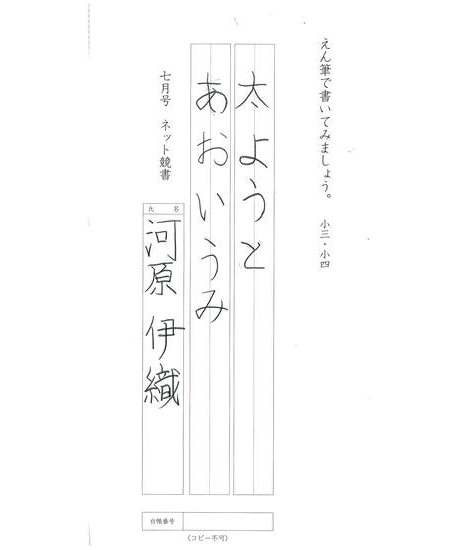 えん筆で書いてみましょう。 小三・小四
太ようと
あおいうみ
七月号 ネット競書
氏名
河原 伊織
台帳番号
(コピー不可)